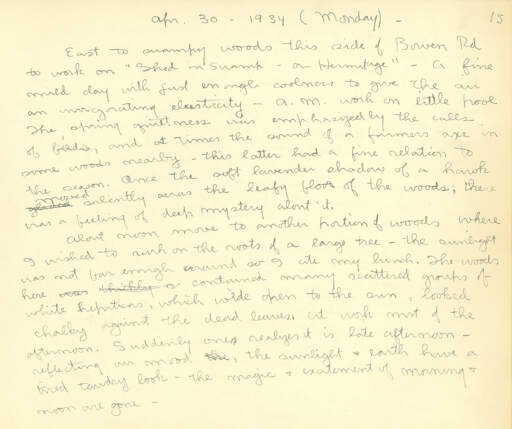 Apr. 30 - 1934 (Monday) -
15
East to swampy woods this side of Bowen Rd
to work on "Shed in Swamp - a Hermitage" - A fine
mild day with just enough coolness to give the air
an invigorating elasticity - A.M. work on little pool
The spring quietness was emphasized by the calls
of birds, and at times the sound of a farmers axe in
some woods nearby - this latter had a fine relation to
the season. Once the soft lavender shadow of a hawk
moved silently across the leafy floor of the woods; there
was a feeling of deep mystery about it.
About noon move to another portion of woods where
I wished to work on the roots of a large tree - the sunlight
was not far enough around so I ate my lunch. The woods
here contained many scattered groups of
white hepaticas, which wide open to the sun, looked
chalky against the dead leaves. At work most of the
afternoon. Suddenly one realizes it is late afternoon -
reflecting on mood, the sunlight & earth have a
tired tawdry look - the magic & excitement of morning &
noon are gone -